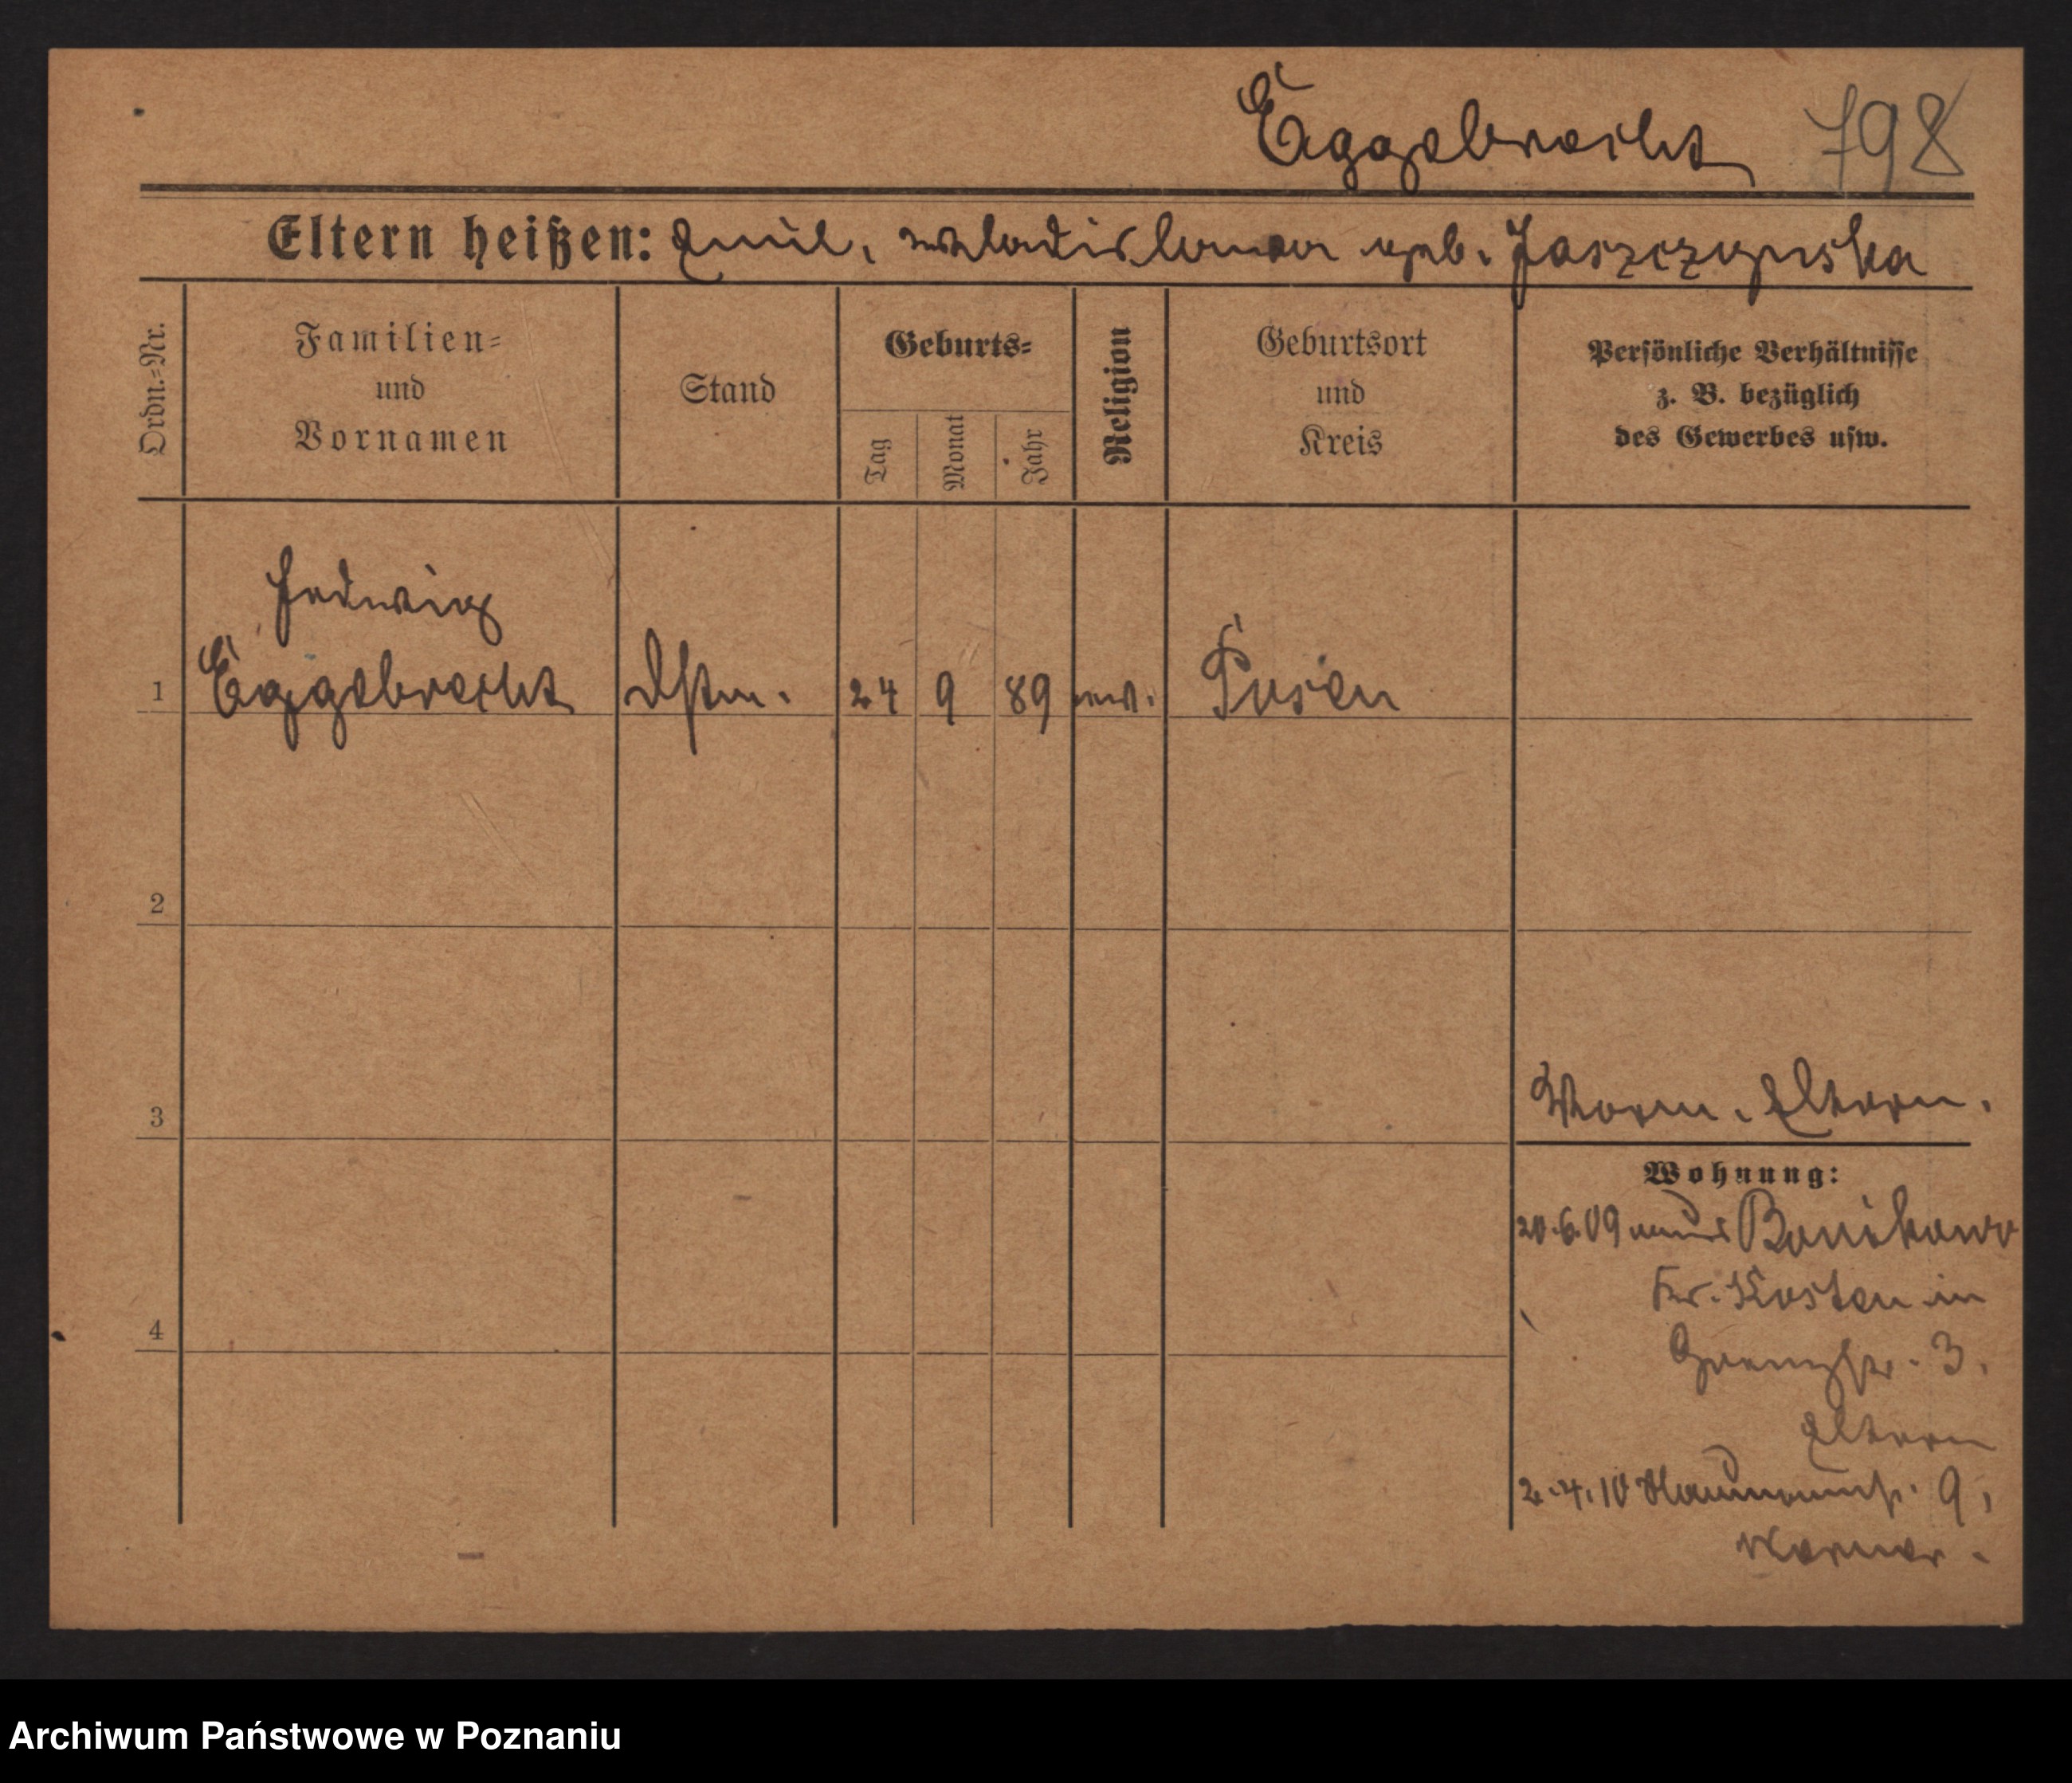 Eggebrecht 798
Eltern heißen: Emil, Wladislawa geb. Jaszczynska
Ordn.=Nr.
Familien=
und
Vornamen
Stand
Geburts=
Tag
Monat
Jahr
Religion
Geburtsort
und
Kreis
Persönliche Verhältnisse
z. B. bezüglich
des Gewerbes usw.
Hedwig
1 Eggebrecht 24 9 89 Posen
2
3
4
Eltern.
Wohnung:
20.6.09 Bonikowo
Kr. Kosten in
Grenzstr. 3.
Eltern
2.4.10 Naumannstr. 9,
Werner.
Archiwum Państwowe w Poznaniu